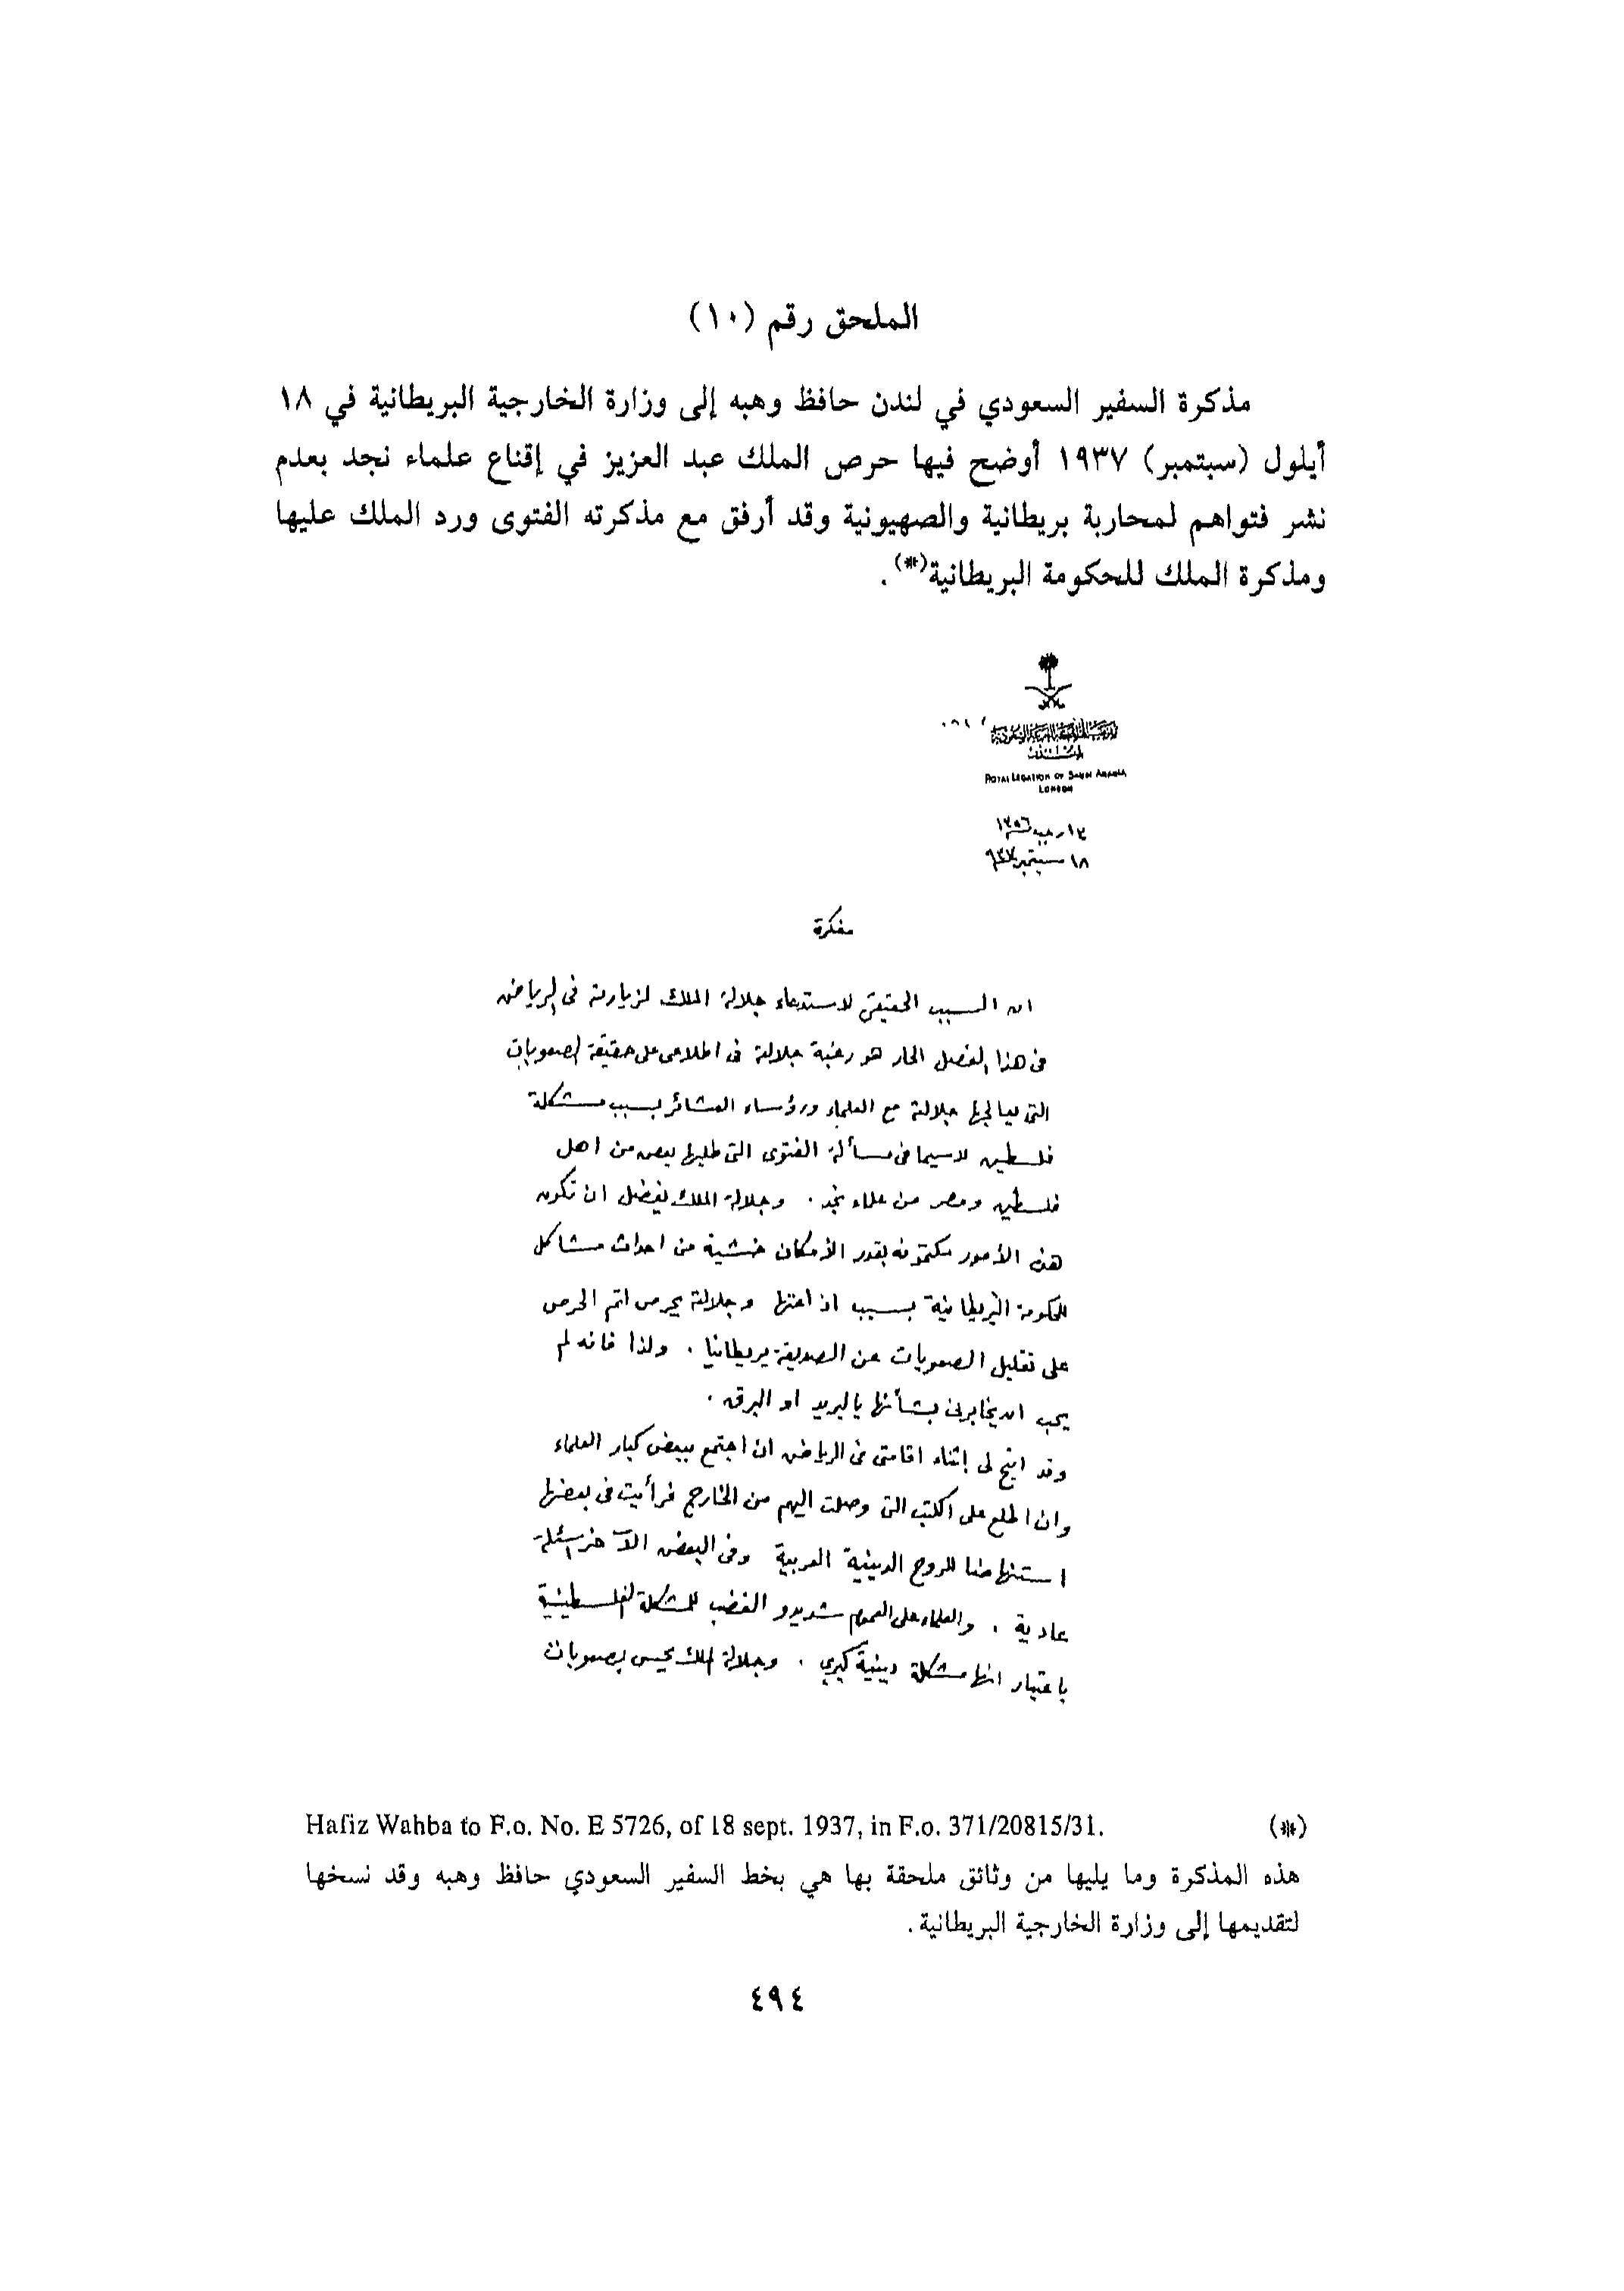 الملحق رقم (١٠)
مذكرة السفير السعودي في لندن حافظ وهبه إلى وزارة الخارجية البريطانية في ١٨
أيلول (سبتمبر) ١٩٣٧ أوضح فيها حرص الملك عبد العزيز في إقناع علماء نجد بعدم
نشر فتواهم لمحاربة بريطانية والصهيونية وقد أرفق مع مذكرته الفتوى ورد الملك عليها
ومذكرة الملك للحكومة البريطانية(*).
ROYAL LEGATION OF SAUDI ARABIA
LONDON
رجب ١٣٥٦
١٨ سبتمبر ٩٣٧
مفكرة
ان السبب الحقيقى لاستدعاء جلالة الملك لزيارته فى الرياض
فى هذا الفصل الحار هو رغبة جلالته فى اطلاعى على حقيقة الصعوبات
التى يعالجها جلالته مع العلماء ورؤساء العشائر بسبب مشكلة
فلسطين لاسيما فى مسألة الفتوى التى طلبها بعض من اهل
فلسطين ومصر من علماء نجد . وجلالة الملك يفضل ان تكون
هذه الأمور مكتومة بقدر الأمكان خشية من احداث مشاكل
للحكومة البريطانية بسبب اذاعتها وجلالته يحرص اتم الحرص
على تقليل الصعوبات عن الصديقة بريطانيا . ولذا فانه لم
يحب ان يخابرنى بشأنها بالبريد او البرق .
وقد اتيح لى اثناء اقامتى فى الرياض ان اجتمع ببعض كبار العلماء
وان اطلع على الكتب التى وصلت اليهم من الخارج فرأيت فى بعضها
استنهاضا للروح الدينية العربية وفى البعض الآخر اسئلة
عادية . والعلماء على العموم شديدو الغضب للمشكلة الفلسطينية
باعتبار انها مشكلة دينية كبرى . وجلالة الملك يحس بصعوبات
(*) Hafiz Wahba to F.o. No. E 5726, of 18 sept. 1937, in F.o. 371/20815/31.
هذه المذكرة وما يليها من وثائق ملحقة بها هي بخط السفير السعودي حافظ وهبه وقد نسخها
لتقديمها إلى وزارة الخارجية البريطانية.
٤٩٤